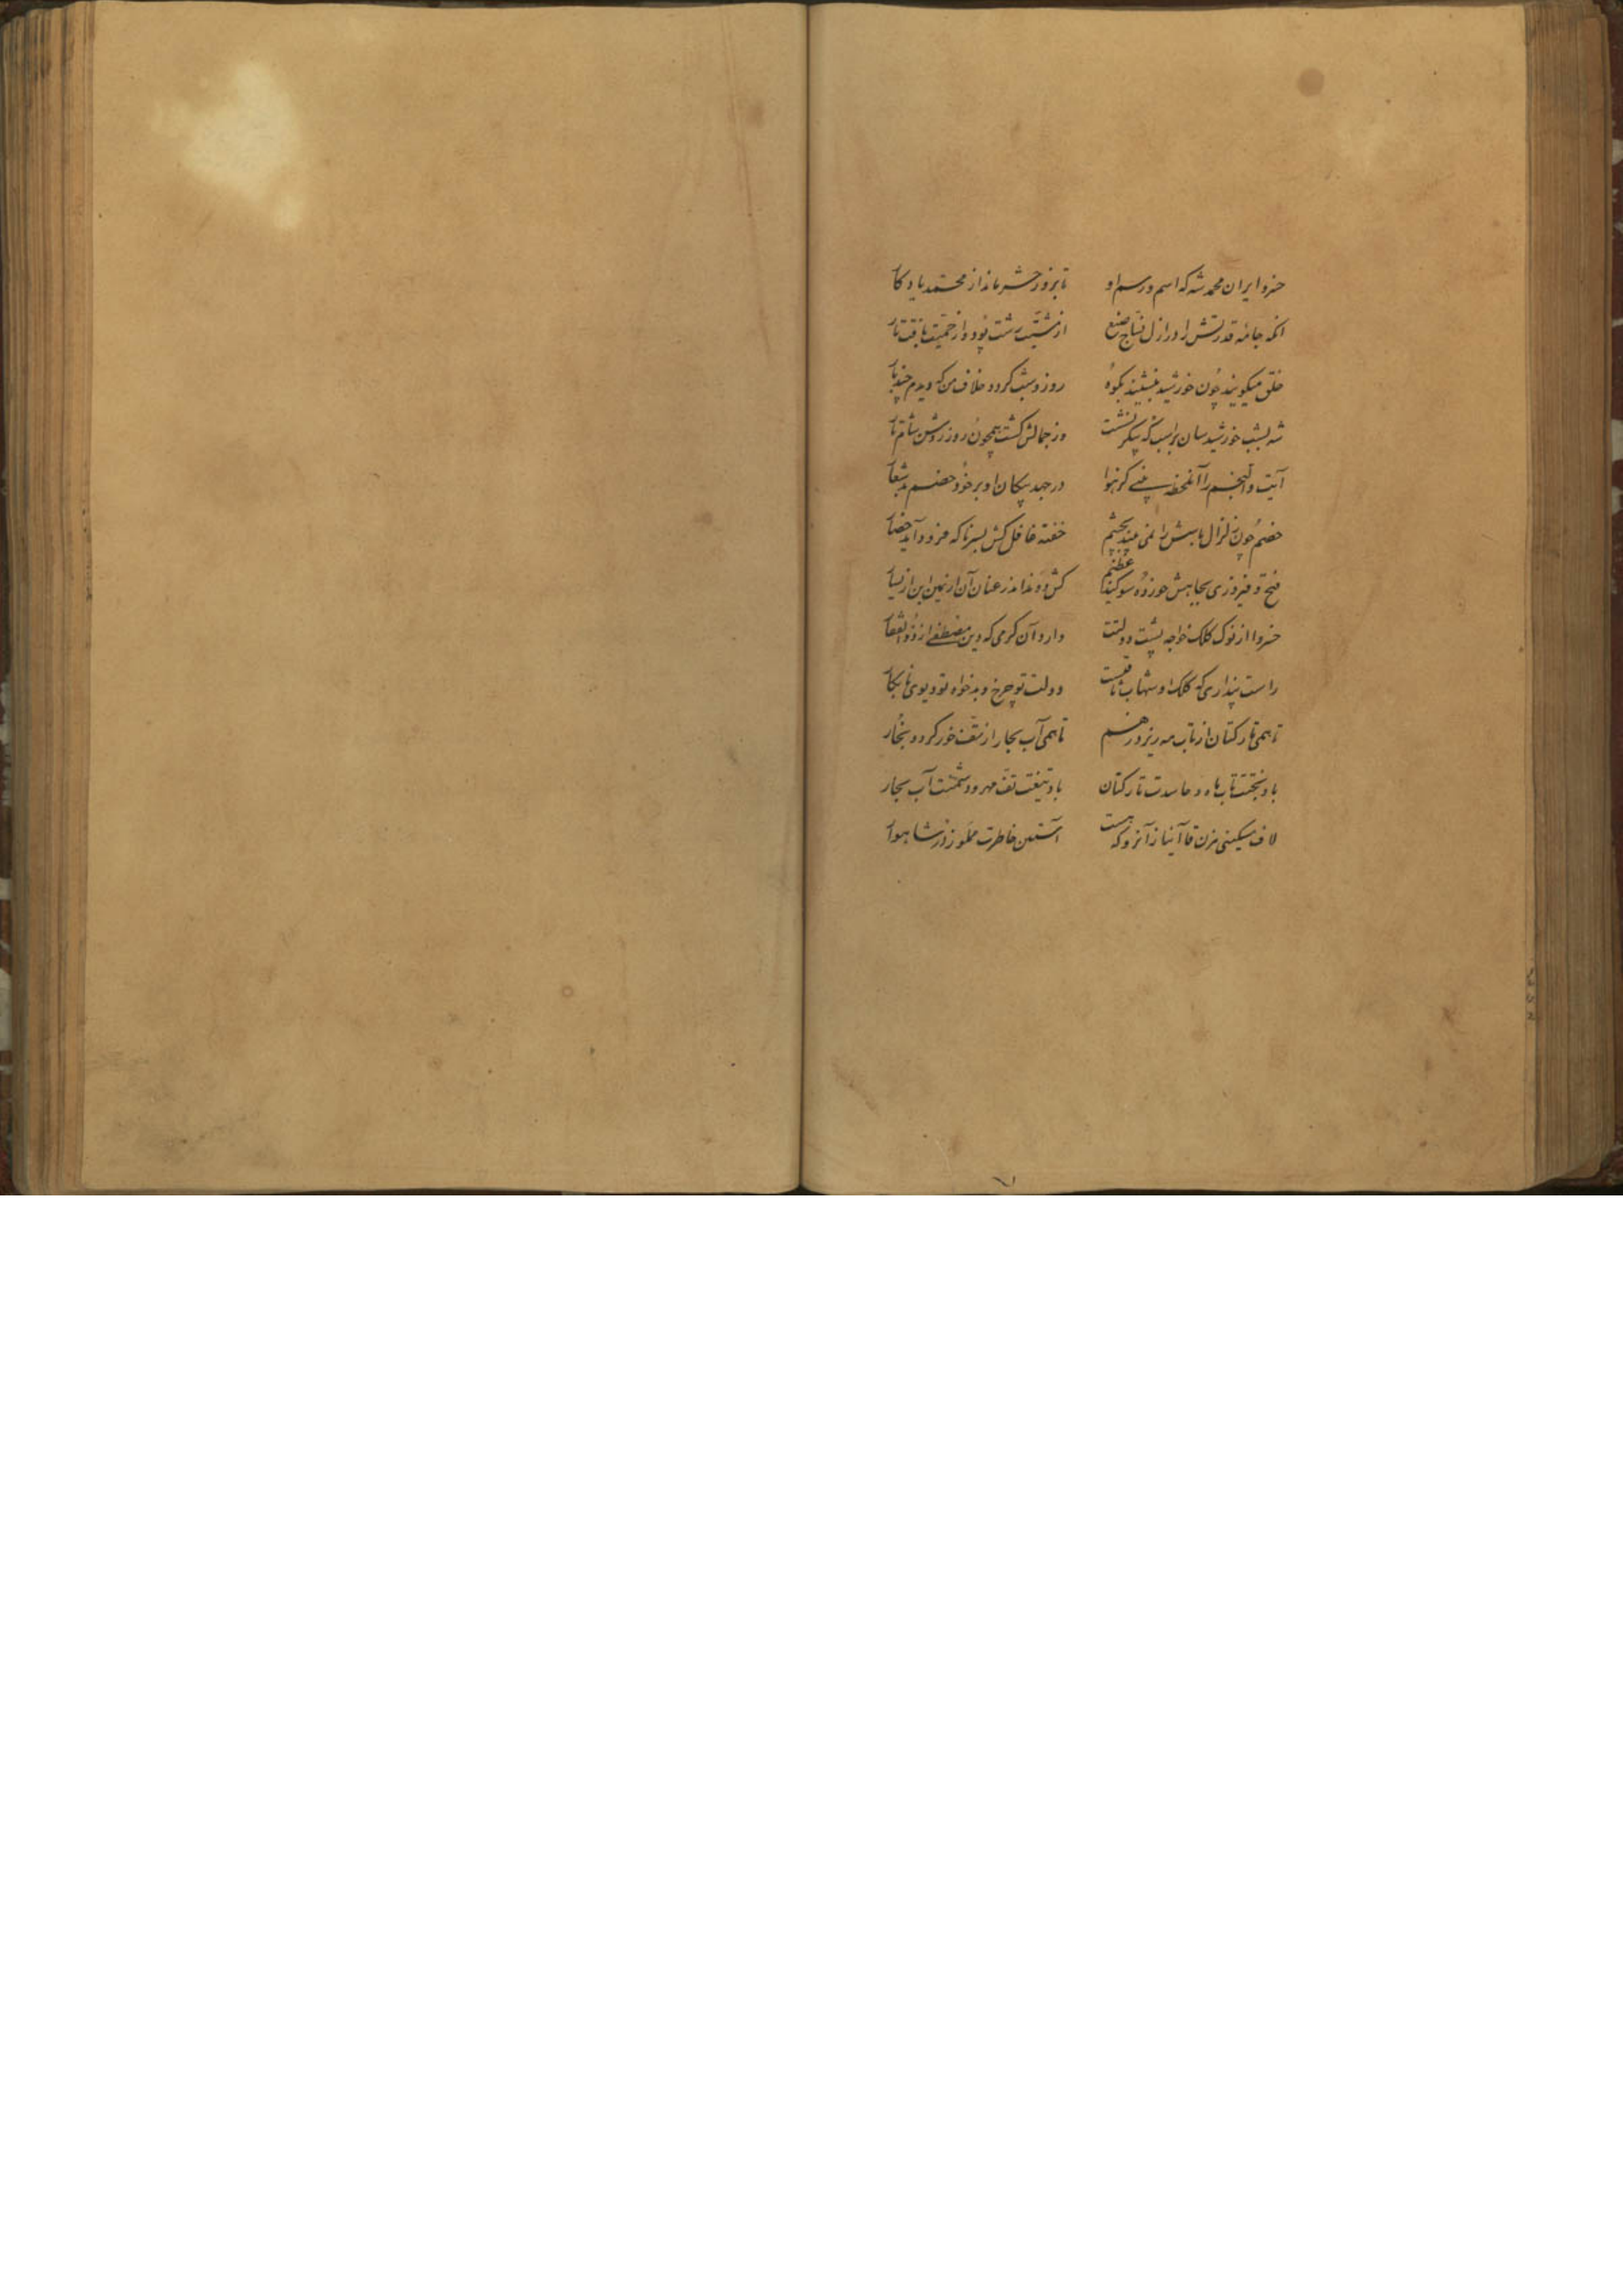 خسرو ایران محمد شه که اسم و رسم او تا بروز حشر ماند از محمد یادکار
آنکه جامه قدرتش را در ازل نساج صنع از مشیت رشت پود و از حمیت بافت تار
خلق میکویند چون خورشید بنشیند بکوه روز و شب کردد خلاف من که دیدم چند بار
شه بشب خورشید سان بر اسب که پیکر نشست وز جمالش کشت همچون روز روشن شام تار
آیت والنجم را آنلحظه بینی کز هوا درجهد پیکان او بر خود خصم نابکار
خصم چون زلزال باسش را نمی بیند بچشم خفته غافل کش بسر ناکه فرود آید حصار
فتح و فیروزی بجاهش خورده سوکند عظیم کش دوند اندر عنان آن از یمین این از یسار
خسروا از نوک کلک خواجه پشت دولتت دارد آن کرمی که دین مصطفی از ذوالفقار
راست پنداری که کلک او شهاب ثاقبست دولت تو چرخ و بدخواه تو دیوی نابکار
تا همی تار کتان از تاب مه ریزد ز هم تا همی آب بحار از تف خور کردد بخار
باد بختت تاب ماه و حاسدت تار کتان باد تیغت تف مهر و دشمنت آب بحار
لاف مسکینی مزن قاآنیا زآنرو که هست آستین خاطرت مملو ز در شاهوار